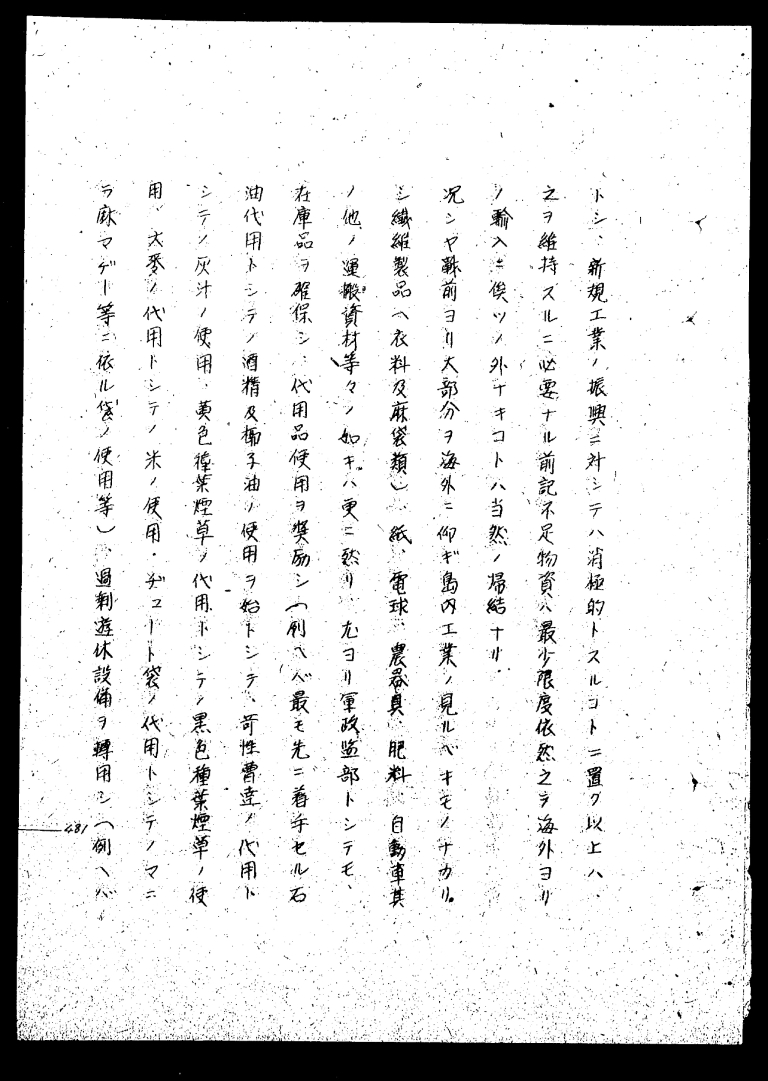 トシ、新規工業ノ振興ニ対シテハ消極的トスルコトニ置ク以上ハ、
之ヲ維持スルニ必要ナル前記不足物資ハ最少限度依然之ヲ海外ヨリ
ノ輸入ニ俟ツノ外ナキコトハ当然ノ帰結ナリ、
況シヤ戦前ヨリ大部分ヲ海外ニ仰ギ島内工業ノ見ルベキモノナカリ
シ繊維製品(衣料及麻袋類)、紙、電球、農器具、肥料、自動車其
ノ他ノ運搬資材等々ノ如キハ更ニ然リ、尤ヨリ軍政監部トシテモ、
在庫品ヲ確保シ、代用品使用ヲ奨励シ(例ヘバ最モ先ニ着手セル石
油代用トシテノ酒精及椰子油ノ使用ヲ始トシテ、苛性曹達ノ代用ト
シテノ灰汁ノ使用、黄色種葉煙草ノ代用トシテノ黒色種葉煙草ノ使
用、大麥ノ代用トシテノ米ノ使用・ヂユート袋ノ代用トシテノマニ
ラ麻マゲー等ニ依ル袋ノ使用等)、過剰遊休設備ヲ轉用シ(例ヘバ
481